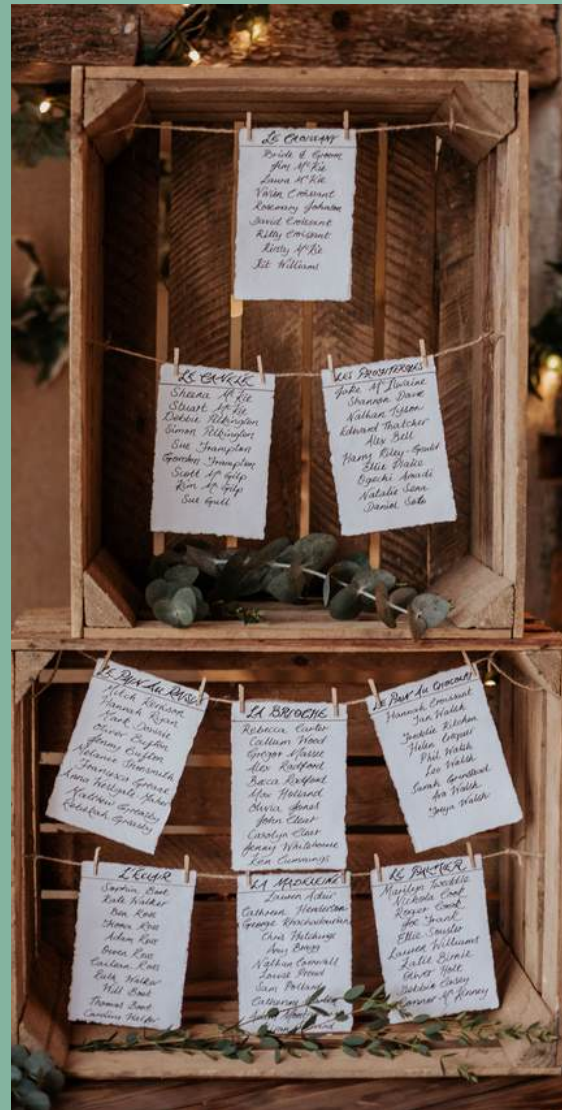 LE CROISSANT
Bride & Groom
Jim McKie
Laura McKie
Vivien Croissant
Rosemary Johnson
David Croissant
Kitty Croissant
Kirsty McKie
Kit Williams
LE CANELÉ
Sheena McKie
Stuart McKie
Debbie Pilkington
Simon Pilkington
Sue Frampton
Gordon Frampton
Scott McGilp
Kim McGilp
Sue Gull
LES PROFITEROLES
Jake McIlwaine
Shannon
Nathan Tyson
Edward Thatcher
Alex Bell
Harry Riley-Gould
Ellie
Ogechi Amadi
Natalie Senn
Daniel Soto
LE PAIN AU RAISIN
Mitch
Hannah Ryan
Mark
Oliver Bufton
Jenny Bufton
Melanie Shoesmith
Francesca
Anna
Matthew Greasley
Rebekah Greasley
LA BRIOCHE
Rebecca Carter
Callum Wood
Gregor Massie
Alex Radford
Becca Radford
Max Holland
Olivia Jones
John Cleat
Carolyn Cleat
Jenny Whitehouse
Len Cummings
LE PAIN AU CHOCOLAT
Hannah Croissant
Ian Walsh
Kitchen
Helen
Phil Walsh
Leo Walsh
Sarah
Ava Walsh
Walsh
L'ÉCLAIR
Sophia Boot
Kate Walker
Ben Ross
Shona Ross
Adam Ross
Owen Ross
Ross
Ruth Walker
Will Boot
Thomas Boot
Caroline
LA MADELEINE
Lauren Adair
Cathreen Henderson
George
Chris Hutchings
Amy Bragg
Nathan Cornwall
Louise
Sam Pollard
Catherine
LE PALMIER
Marilyn Tweddle
Nickola Cook
Roger Cook
Joe Frank
Ellie Souster
Lauren Williams
Katie Birnie
Oliver Holt
Debbie Casey
Connor McKinney